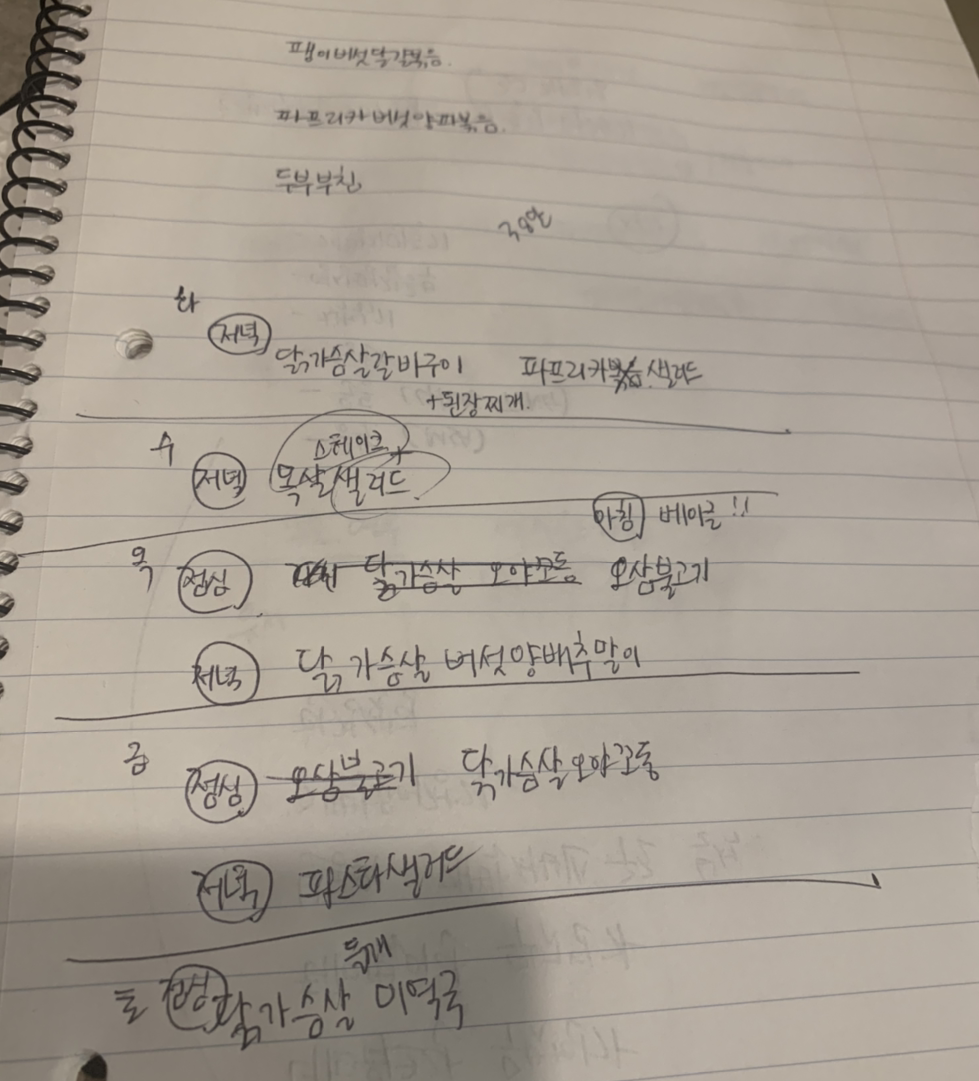 팽이버섯달걀볶음.
파프리카버섯양파볶음.
두부부침
화
저녁 닭가슴살갈바구이 파프리카볶음.샐러드
+된장찌개.
수 스테이크+
저녁 목살샐러드
아침 베이글!!
목 점심 닭가슴살 오야꼬동 오삼불고기
저녁 닭가슴살 버섯양배추말이
금 점심 오삼불고기 닭가슴살오야꼬동
저녁 파스타샐러드
들깨
토 점심 닭가슴살 미역국